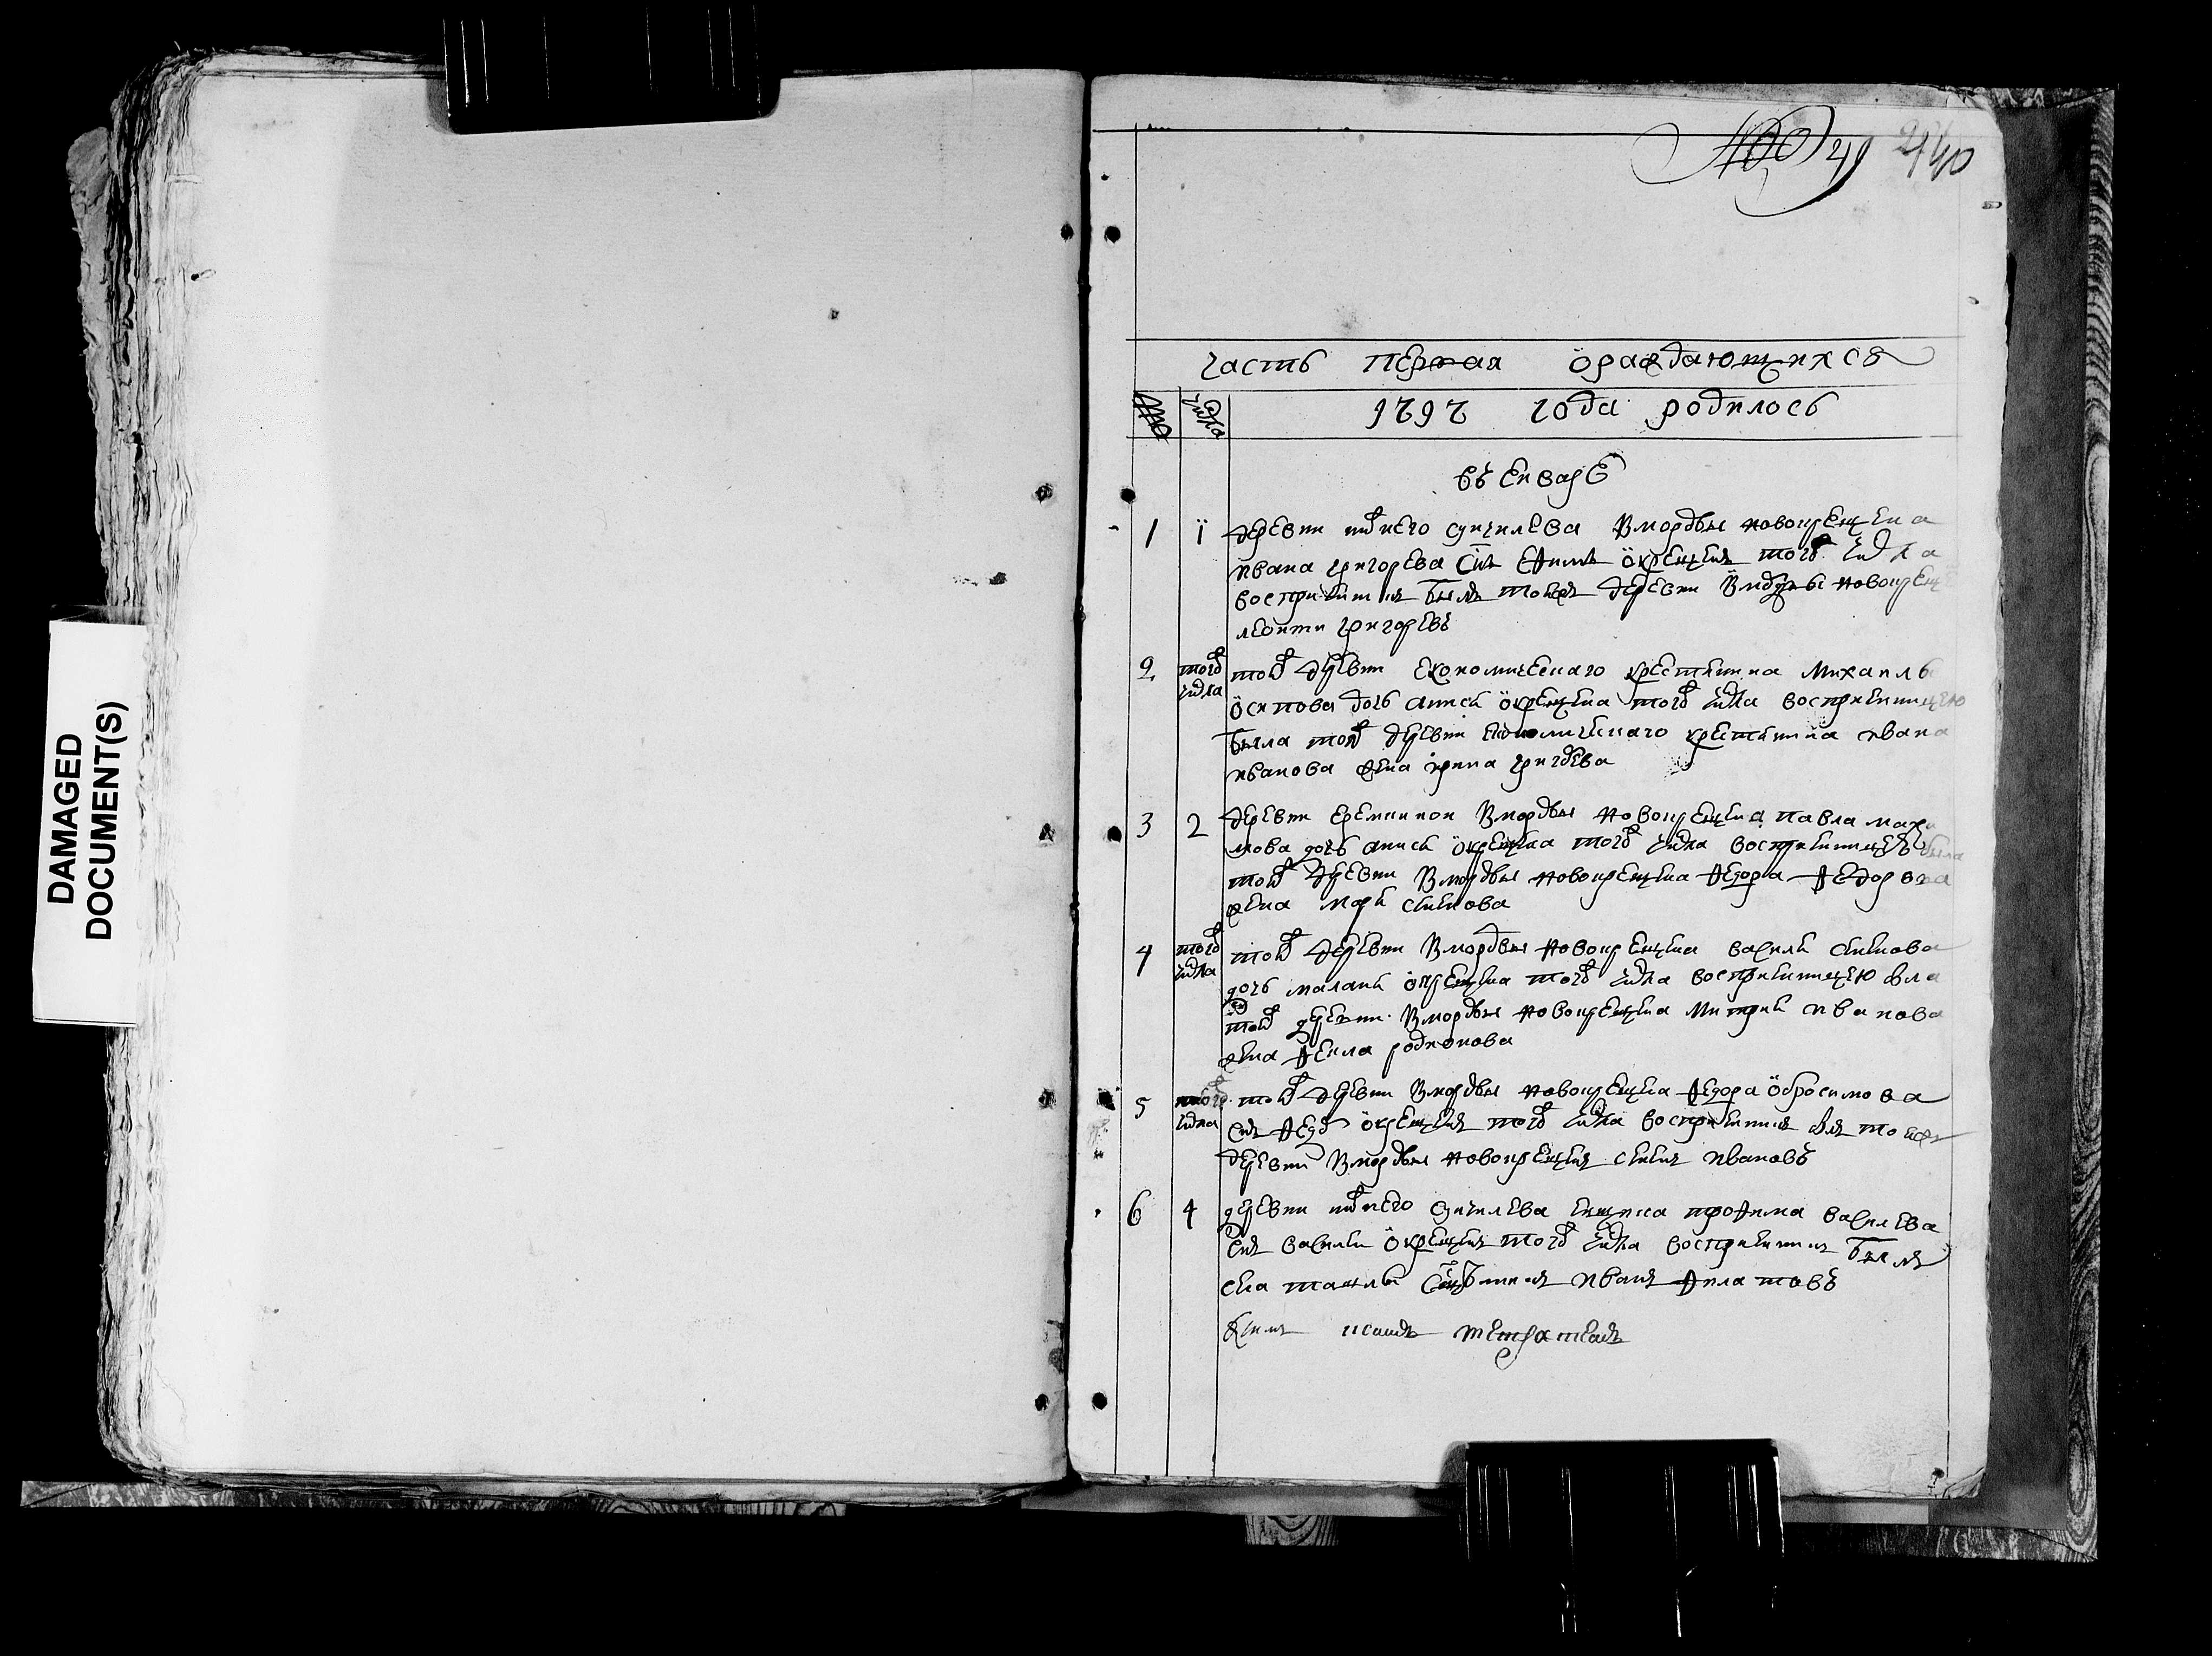 DAMAGED
DOCUMENT(S)
240
часть первая о раждающихся
1797 года родилось
въ Енваре
1 1 деревни нижнего сучилева из мордвы новокрещена
ивана григорева снъ окрещенъ тогож числа
восприемникъ былъ тойже деревни из мордвы новокрещ
леонти григоревъ
2 тогож числа тойж деревни економическаго крестьянина михаилы
осипова дочь аниси окрещена тогож числа восприемницею
была тойж деревни економическаго крестьянина ивана
иванова жена ирина григорева
3 2 деревни из мордвы новокрещена павла
мова дочь аниси окрещена тогож числа восприемницею была
тойж деревни из мордвы новокрещена федора федорова
жена марья семенова
4 тогож числа тойж деревни из мордвы новокрещена василья семенова
дочь маланья окрещена тогож числа восприемницею была
тойж деревни из мордвы новокрещена митрия иванова
жена фекла родионова
5 тогож числа тойж деревни из мордвы новокрещена федора обросимова
снъ федоръ окрещенъ тогож числа восприемникъ былъ тойже
деревни из мордвы новокрещенъ семенъ ивановъ
6 4 деревни нижнего сучилева трофима василева
снъ василей окрещенъ тогож числа восприемникъ былъ
села иванъ филатовъ